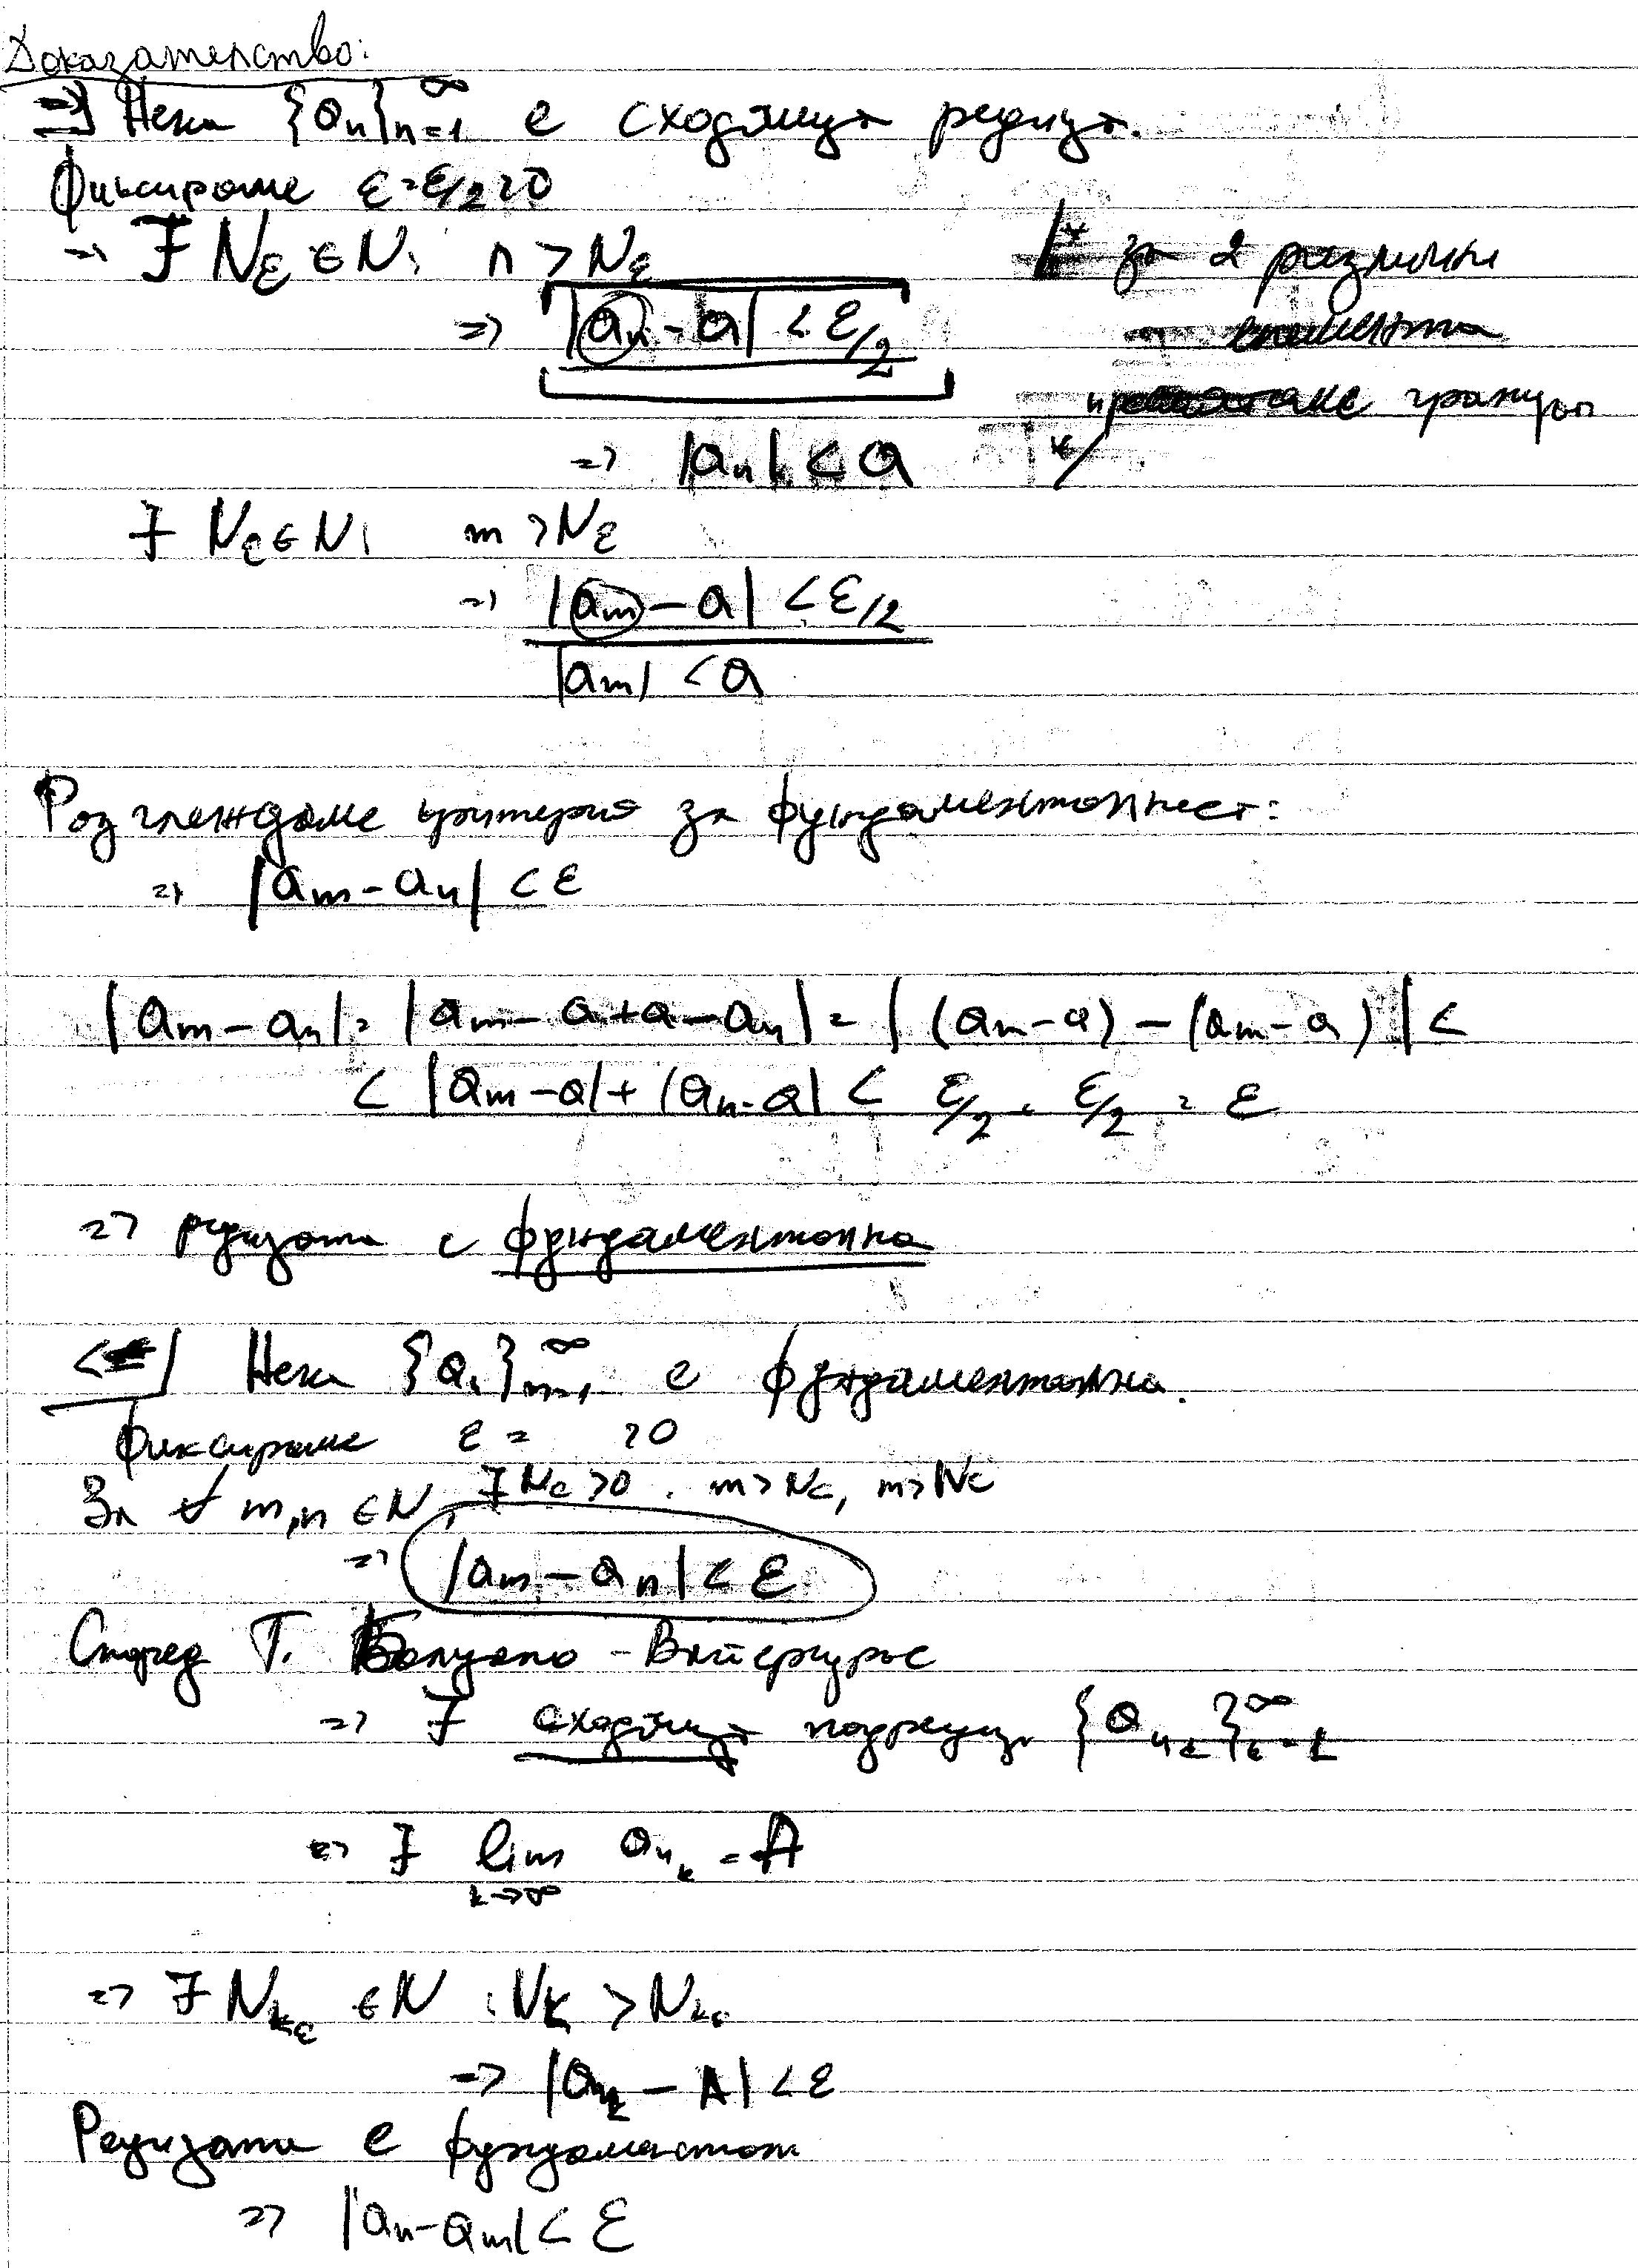 Доказателство:
=>] Нека {aₙ}ₙ₌₁^∞ е сходяща редица.
Фиксираме ε = ε/2 > 0
=> ∃ Nε ∈ N: n > Nε
=> |aₙ - a| < ε/2
=> |aₙ| < a
/* за 2 различни
елемента
граници
*/
∃ Nε ∈ N: m > Nε
=> |aₘ - a| < ε/2
|aₘ| < a
Разглеждаме критерия за фундаменталност:
=> |aₘ - aₙ| < ε
|aₘ - aₙ| = |aₘ - a + a - aₙ| = |(aₘ - a) - (aₘ - a)| <
< |aₘ - a| + |aₙ - a| < ε/2 + ε/2 = ε
=> редицата е фундаментална
<=] Нека {aₙ}ₙ₌₁^∞ е фундаментална.
Фиксираме ε = > 0
За ∀ m,n ∈ N, ∃ Nε > 0 : m > Nε, m > Nε
=> |aₘ - aₙ| < ε
Според Т. Болцано - Вайерщрас
=> ∃ сходяща подредица {aₙₖ}ₖ₌₁^∞
=> ∃ lim aₙₖ = A
k->∞
=> ∃ Nkε ∈ N : Nk > Nkε
=> |aₙₖ - A| < ε
Редицата е фундаментал
=> |aₙ - aₘ| < ε